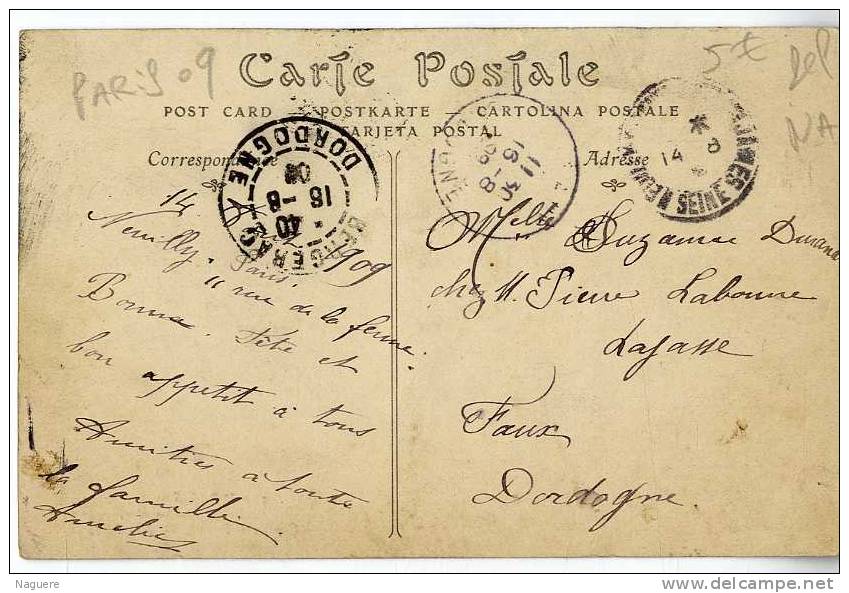 PARIS 09
5€
Del
NA
Carte Postale
POST CARD - POSTKARTE - CARTOLINA POSTALE
TARJETA POSTAL
Correspondance
Adresse
BERGERAC DORDOGNE
16-8
09
14 8
SEINE
14 1909
Neuilly. Paris.
11 rue de la ferme.
Bonne. Fête et
bon appetit à tous
Amitiés à toute
la famille
Amélie
Melle Suzanne Durand
chez M. Pierre Labonne
Lagasse
Faux
Dordogne.
Naguere
delcampe.net